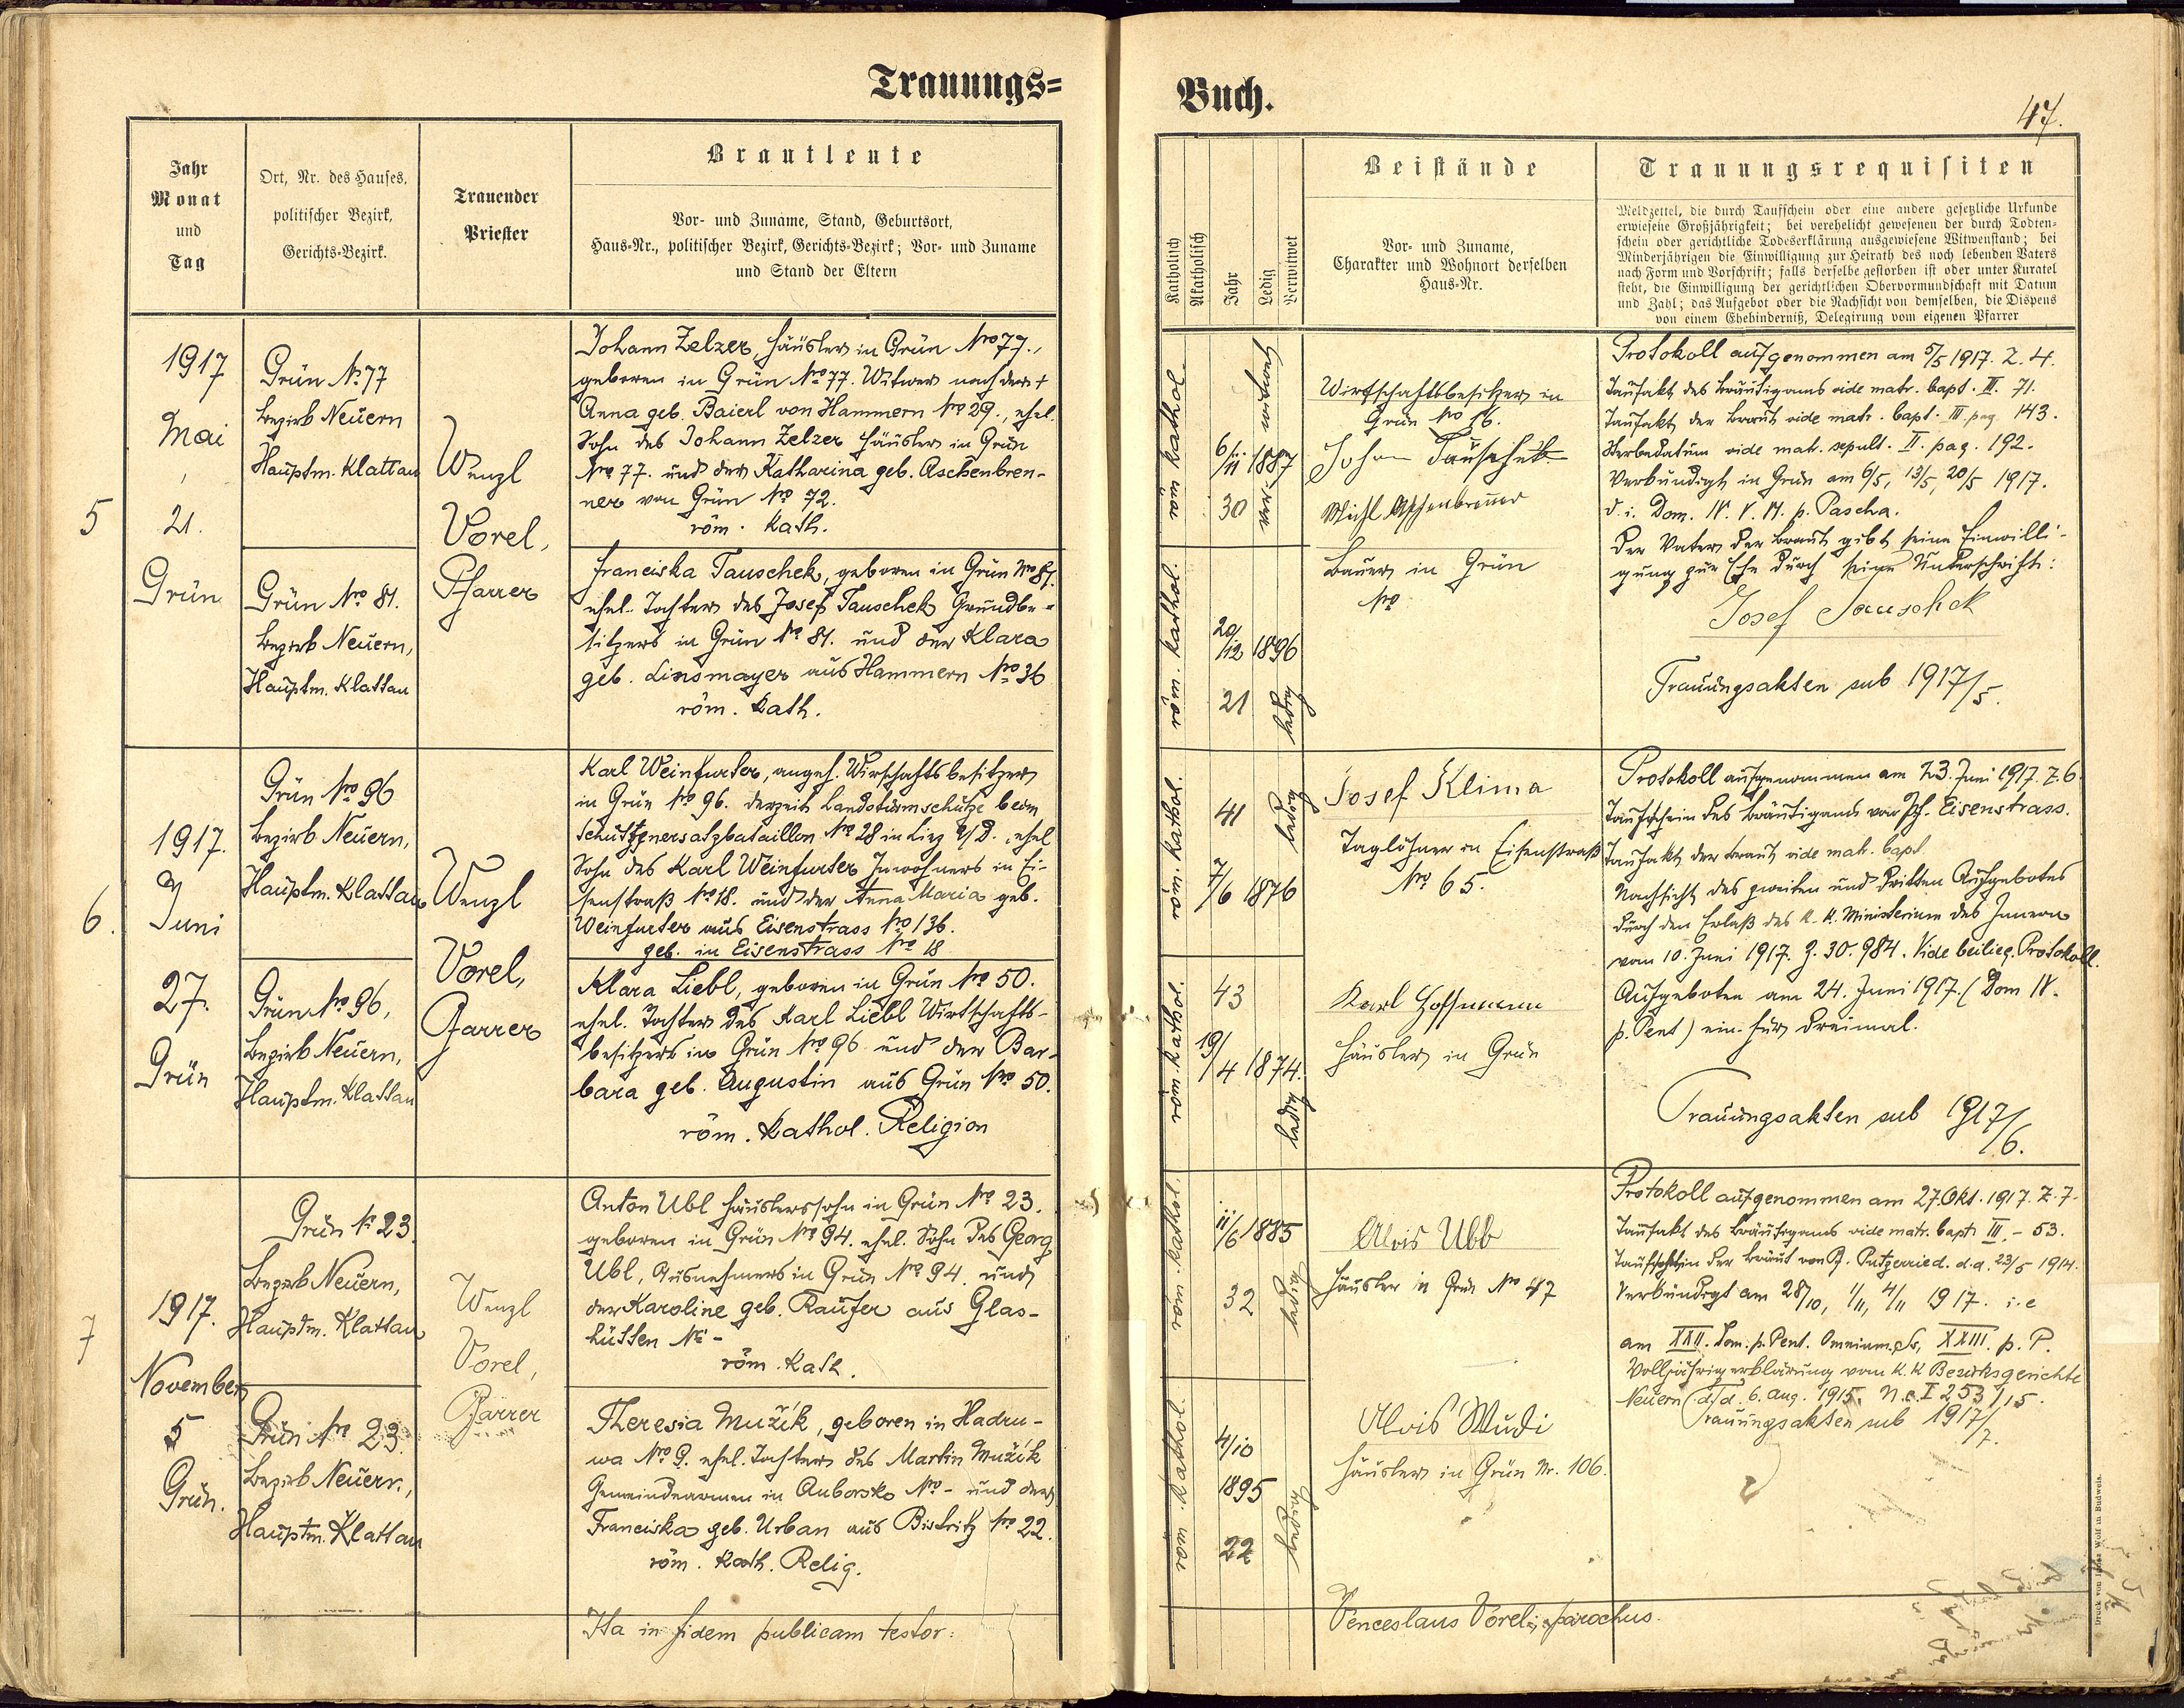 Trauungs=
Jahr
Monat
und
Tag
Ort, Nr. des Hauses,
politischer Bezirk,
Gerichts-Bezirk.
Trauender
Priester
Brautleute
Vor- und Zuname, Stand, Geburtsort,
Haus-Nr., politischer Bezirk, Gerichts-Bezirk; Vor- und Zuname
und Stand der Eltern
5
1917
Mai
21.
Grün
Grün No 77
Bezirk Neuern
Hauptm. Klattau
Grün Nro 81.
Bezirk Neuern,
Hauptm. Klattau
Wenzl
Vorel,
Pfarrer
Johann Zelzer, Häusler in Grün Nro 77.,
geboren in Grün Nro 77. Witwer nach der +
Anna geb. Baierl von Hammern Nro 29., ehel.
Sohn des Johann Zelzer Häusler in Grün
Nro 77. und der Katharina geb. Aschenbren-
ner von Grün Nro 72.
röm. kath.
Franciska Tauschek, geboren in Grün Nro 81.
ehel. Tochter des Josef Tauschek Grundbe-
sitzers in Grün No 81. und der Klara
geb. Linsmayer aus Hammern Nro 36
röm. kath.
6.
1917.
Juni
27.
Grün
Grün Nro 96
Bezirk Neuern,
Hauptm. Klattau
Grün Nro 96,
Bezirk Neuern,
Hauptm. Klattau
Wenzl
Vorel,
Pfarrer
Karl Weinfurter, angeh. Wirtschaftsbesitzer
in Grün Nro 96. derzeit Landsturmschütze beim
Schützenersatzbataillon No 28 in Linz a/D., ehel
Sohn des Karl Weinfurter Inwohners in Ei-
senstraß No 18. und der Anna Maria geb.
Weinfurter aus Eisenstrass Nro 136.
geb. in Eisenstrass Nro 18
Klara Liebl, geboren in Grün Nro 50.
ehel. Tochter des Karl Liebl Wirtschafts-
besitzers in Grün Nro 96 und der Bar-
bara geb. Augustin aus Grün Nro 50.
röm. kathol. Religion
7
1917.
November
5
Grün.
Grün No 23.
Bezirk Neuern,
Hauptm. Klattau
Grün Nro 23.
Bezirk Neuern,
Hauptm. Klattau
Wenzl
Vorel,
Pfarrer
Anton Ubl Häuslerssohn in Grün Nro 23.
geboren in Grün Nro 94. ehel. Sohn des Georg
Ubl, Ausnehmers in Grün Nro 94. und
der Karoline geb. Raufer aus Glas-
hütten No -
röm. kath.
Theresia Mužík, geboren in Hadru-
wa Nro 9. ehel. Tochter des Martin Mužík
Gemeindearmen in Auborsko Nro - und der
Franciska geb. Urban aus Bistritz Nro 22.
röm. kath. Relig.
Ita in fidem publicam testor:
Buch.
47.
Katholisch
Akatholisch
Jahr
Ledig
Verwitwet
Beistände
Vor- und Zuname,
Charakter und Wohnort derselben
Haus-Nr.
Trauungsrequisiten
Meldzettel, die durch Taufschein oder eine andere gesetzliche Urkunde
erwiesene Großjährigkeit; bei verehelicht gewesenen der durch Todten-
schein oder gerichtliche Todeserklärung ausgewiesene Witwenstand; bei
Minderjährigen die Einwilligung zur Heirath des noch lebenden Vaters
nach Form und Vorschrift; falls derselbe gestorben ist oder unter Kuratel
steht, die Einwilligung der gerichtlichen Obervormundschaft mit Datum
und Zahl; das Aufgebot oder die Nachsicht von demselben, die Dispens
von einem Ehehinderniß, Delegirung vom eigenen Pfarrer
röm kathol
6/11 1887
30
ver- witwet
röm. kathol.
20/12 1896
21
ledig
Wirtschaftsbesitzer in
Grün No 56.
Johann Tauschek
Michl Aschenbrenner
Bauer in Grün
Nro
Protokoll aufgenommen am 5/5 1917. Z. 4.
Taufakt des Bräutigams vide matr. bapt. III. 71.
Taufakt der Braut vide matr. bapt. III pag. 143.
Sterbedatum vide matr. sepult. II. pag. 192.
Verkündigt in Grün am 6/5, 13/5, 20/5 1917.
d. i. Dom. IV. V. VI. p. Pascha.
Der Vater der Braut gibt seine Einwilli-
gung zur Ehe durch seine Unterschrift:
Josef Tauschek
Trauungsakten sub 1917/5.
röm. kathol.
41
7/6 1876
ledig
röm. kathol.
43
19/4 1874.
ledig
Josef Klima
Taglöhner in Eisenstraß
Nro 65.
Karl Hoffmann
Häusler in Grün
Protokoll aufgenommen am 23. Juni 1917. Z. 6.
Taufschein des Bräutigams von Pf. Eisenstrass.
Taufakt der Braut vide matr. bapt.
Nachsicht des zweiten und dritten Aufgebotes
durch den Erlaß des k. k. Ministerium des Innern
vom 10. Juni 1917. Z. 30.984. Vide beilieg. Protokoll.
Aufgeboten am 24. Juni 1917. (Dom IV.
p. Pent) ein- für dreimal.
Trauungsakten sub 1917/6.
röm. kathol.
11/6 1885
32
ledig
röm. kathol.
4/10
1895
22
ledig
Alois Ubl
Häusler in Grün No 47
Alois Mudi
Häusler in Grün Nr. 106.
Protokoll aufgenommen am 27. Okt. 1917. Z. 7.
Taufakt des Bräutigams vide matr. bapt. III. - 53.
Taufschein der Braut von Pf. Putzerried. d.d. 23/5 1914.
Verkündigt am 28/10, 1/11, 4/11 1917. i. e
am XXII. Dom. p. Pent. Omnium SS, XXIII. p. P.
Volljährigerklärung vom k. k Bezirksgerichte
Neuern d/d. 6. Aug. 1915. N. c. I 253/15.
Trauungsakten sub 1917/7.
Venceslaus Vorel, parochus.
Druck von Wolf in Budweis.